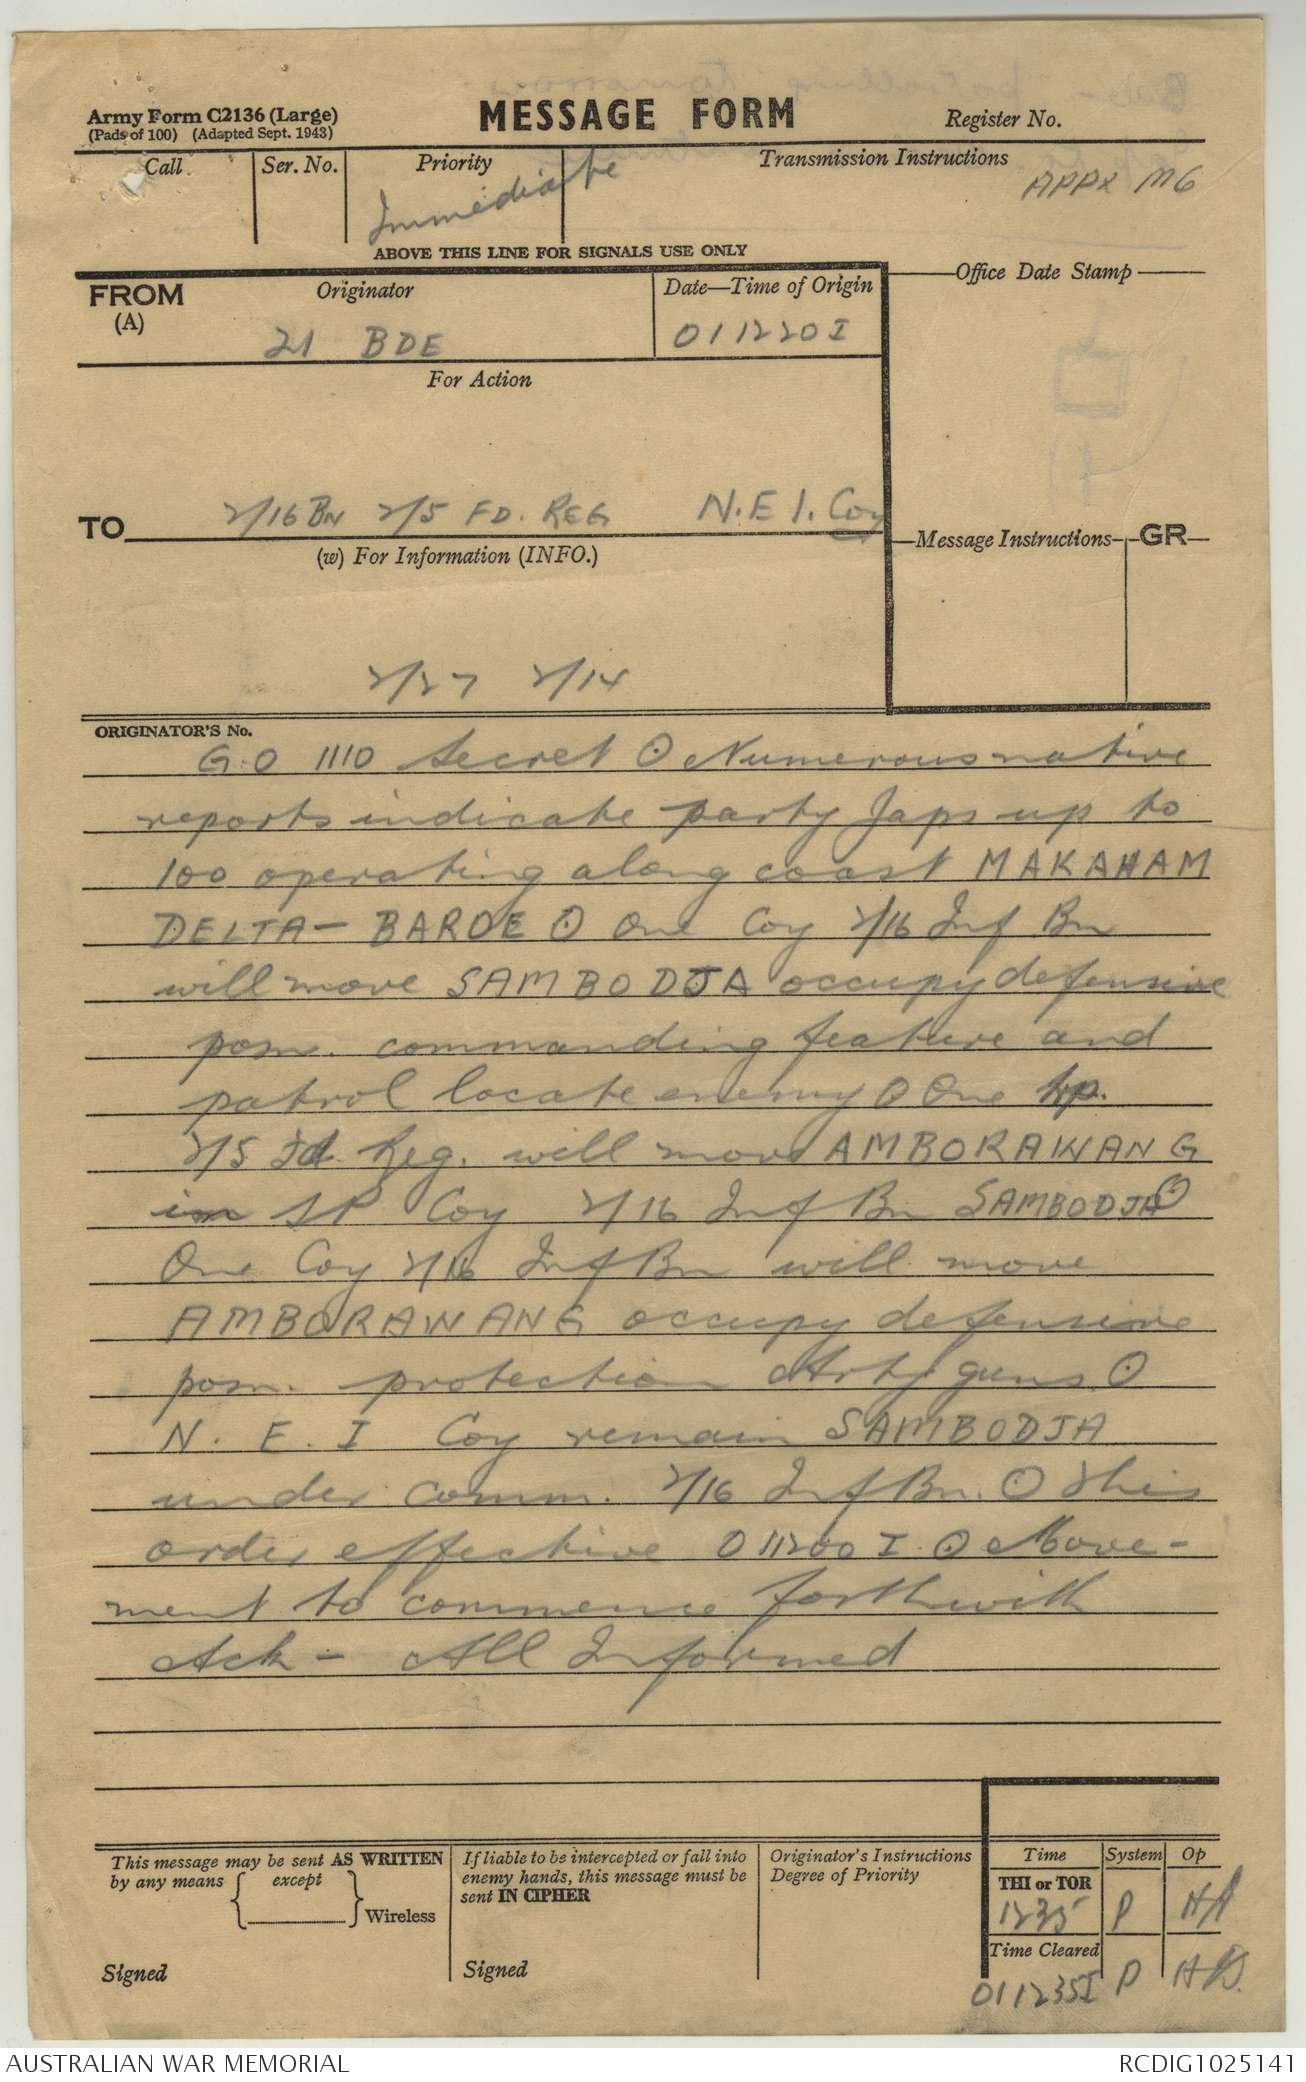 Army Form C2136 (Large)
(Pads of 100) (Adapted Sept. 1943)
MESSAGE FORM
Register No.
Call
Ser. No.
Priority
Immediate
Transmission Instructions
APPX M6
ABOVE THIS LINE FOR SIGNALS USE ONLY
FROM
(A)
Originator
21 BDE
Date—Time of Origin
011220 I
Office Date Stamp
For Action
TO
2/16 BN 2/5 FD. REG N.E I. Coy
(w) For Information (INFO.)
2/27 2/14
Message Instructions
GR
ORIGINATOR'S No.
G.O 1110 Secret O Numerous native
reports indicate party Japs up to
100 operating along coast MAKAHAM
DELTA - BAROE O One Coy 2/16 Inf Bn
will move SAMBODJA occupy defensive
posn. commanding feature and
patrol locate enemy O One trp.
2/5 Fd. Reg. will move AMBORAWANG
in SP Coy 2/16 Inf Bn SAMBODJA O
One Coy 2/16 Inf Bn will move
AMBORAWANG occupy defensive
posn. protection Arty guns O
N. E. I Coy remain SAMBODJA
under comm. 2/16 Inf Bn. O This
order effective 011200 I O Move-
ment to commence forthwith
Ack - All Informed
This message may be sent AS WRITTEN
by any means except
Wireless
Signed
If liable to be intercepted or fall into
enemy hands, this message must be
sent IN CIPHER
Signed
Originator's Instructions
Degree of Priority
Time System Op
THI or TOR
1235 P
Time Cleared
011235I P
AUSTRALIAN WAR MEMORIAL
RCDIG1025141